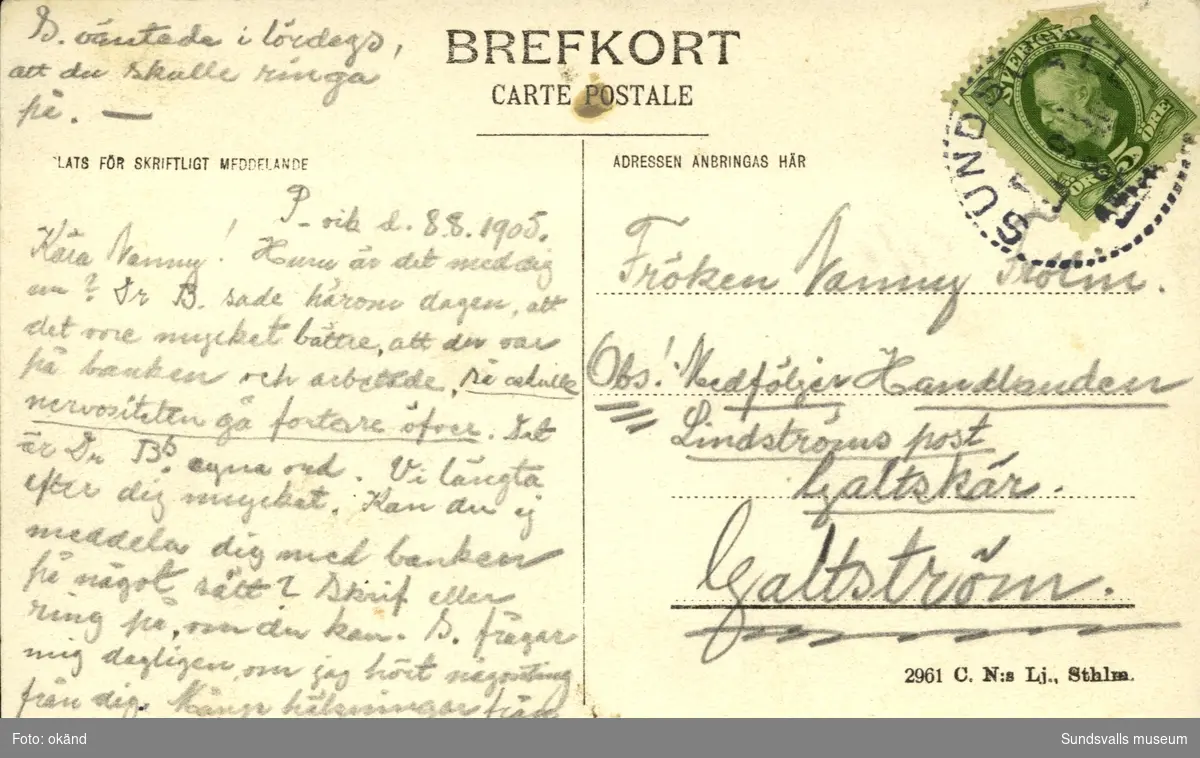 S. väntade i lördags,
att du skulle ringa
på. —
BREFKORT
CARTE POSTALE
LATS FÖR SKRIFTLIGT MEDDELANDE
ADRESSEN ANBRINGAS HÄR
SVERIGE
5
ÖRE
SUNDSVALL
P-vik d. 8.8.1905.
Kära Nanny! Huru är det med dig
nu? Dr B. sade härom dagen, att
det vore mycket bättre, att du var
på banken och arbetade, så skulle
nervositeten gå fortare öfver. Det
är Dr Bs. egna ord. Vi längta
efter dig mycket. Kan du ej
meddela dig med banken
på något sätt? Skrif eller
ring på, om du kan. S. frågar
mig dagligen, om jag hört någonting
från dig. Många hälsningar från
Fröken Nanny Holm.
Obs! Medföljer Handlanden
Lindströms post
Galtskär.
Galtström.
2961 C. N:s Lj., Sthlm.
Foto: okänd
Sundsvalls museum